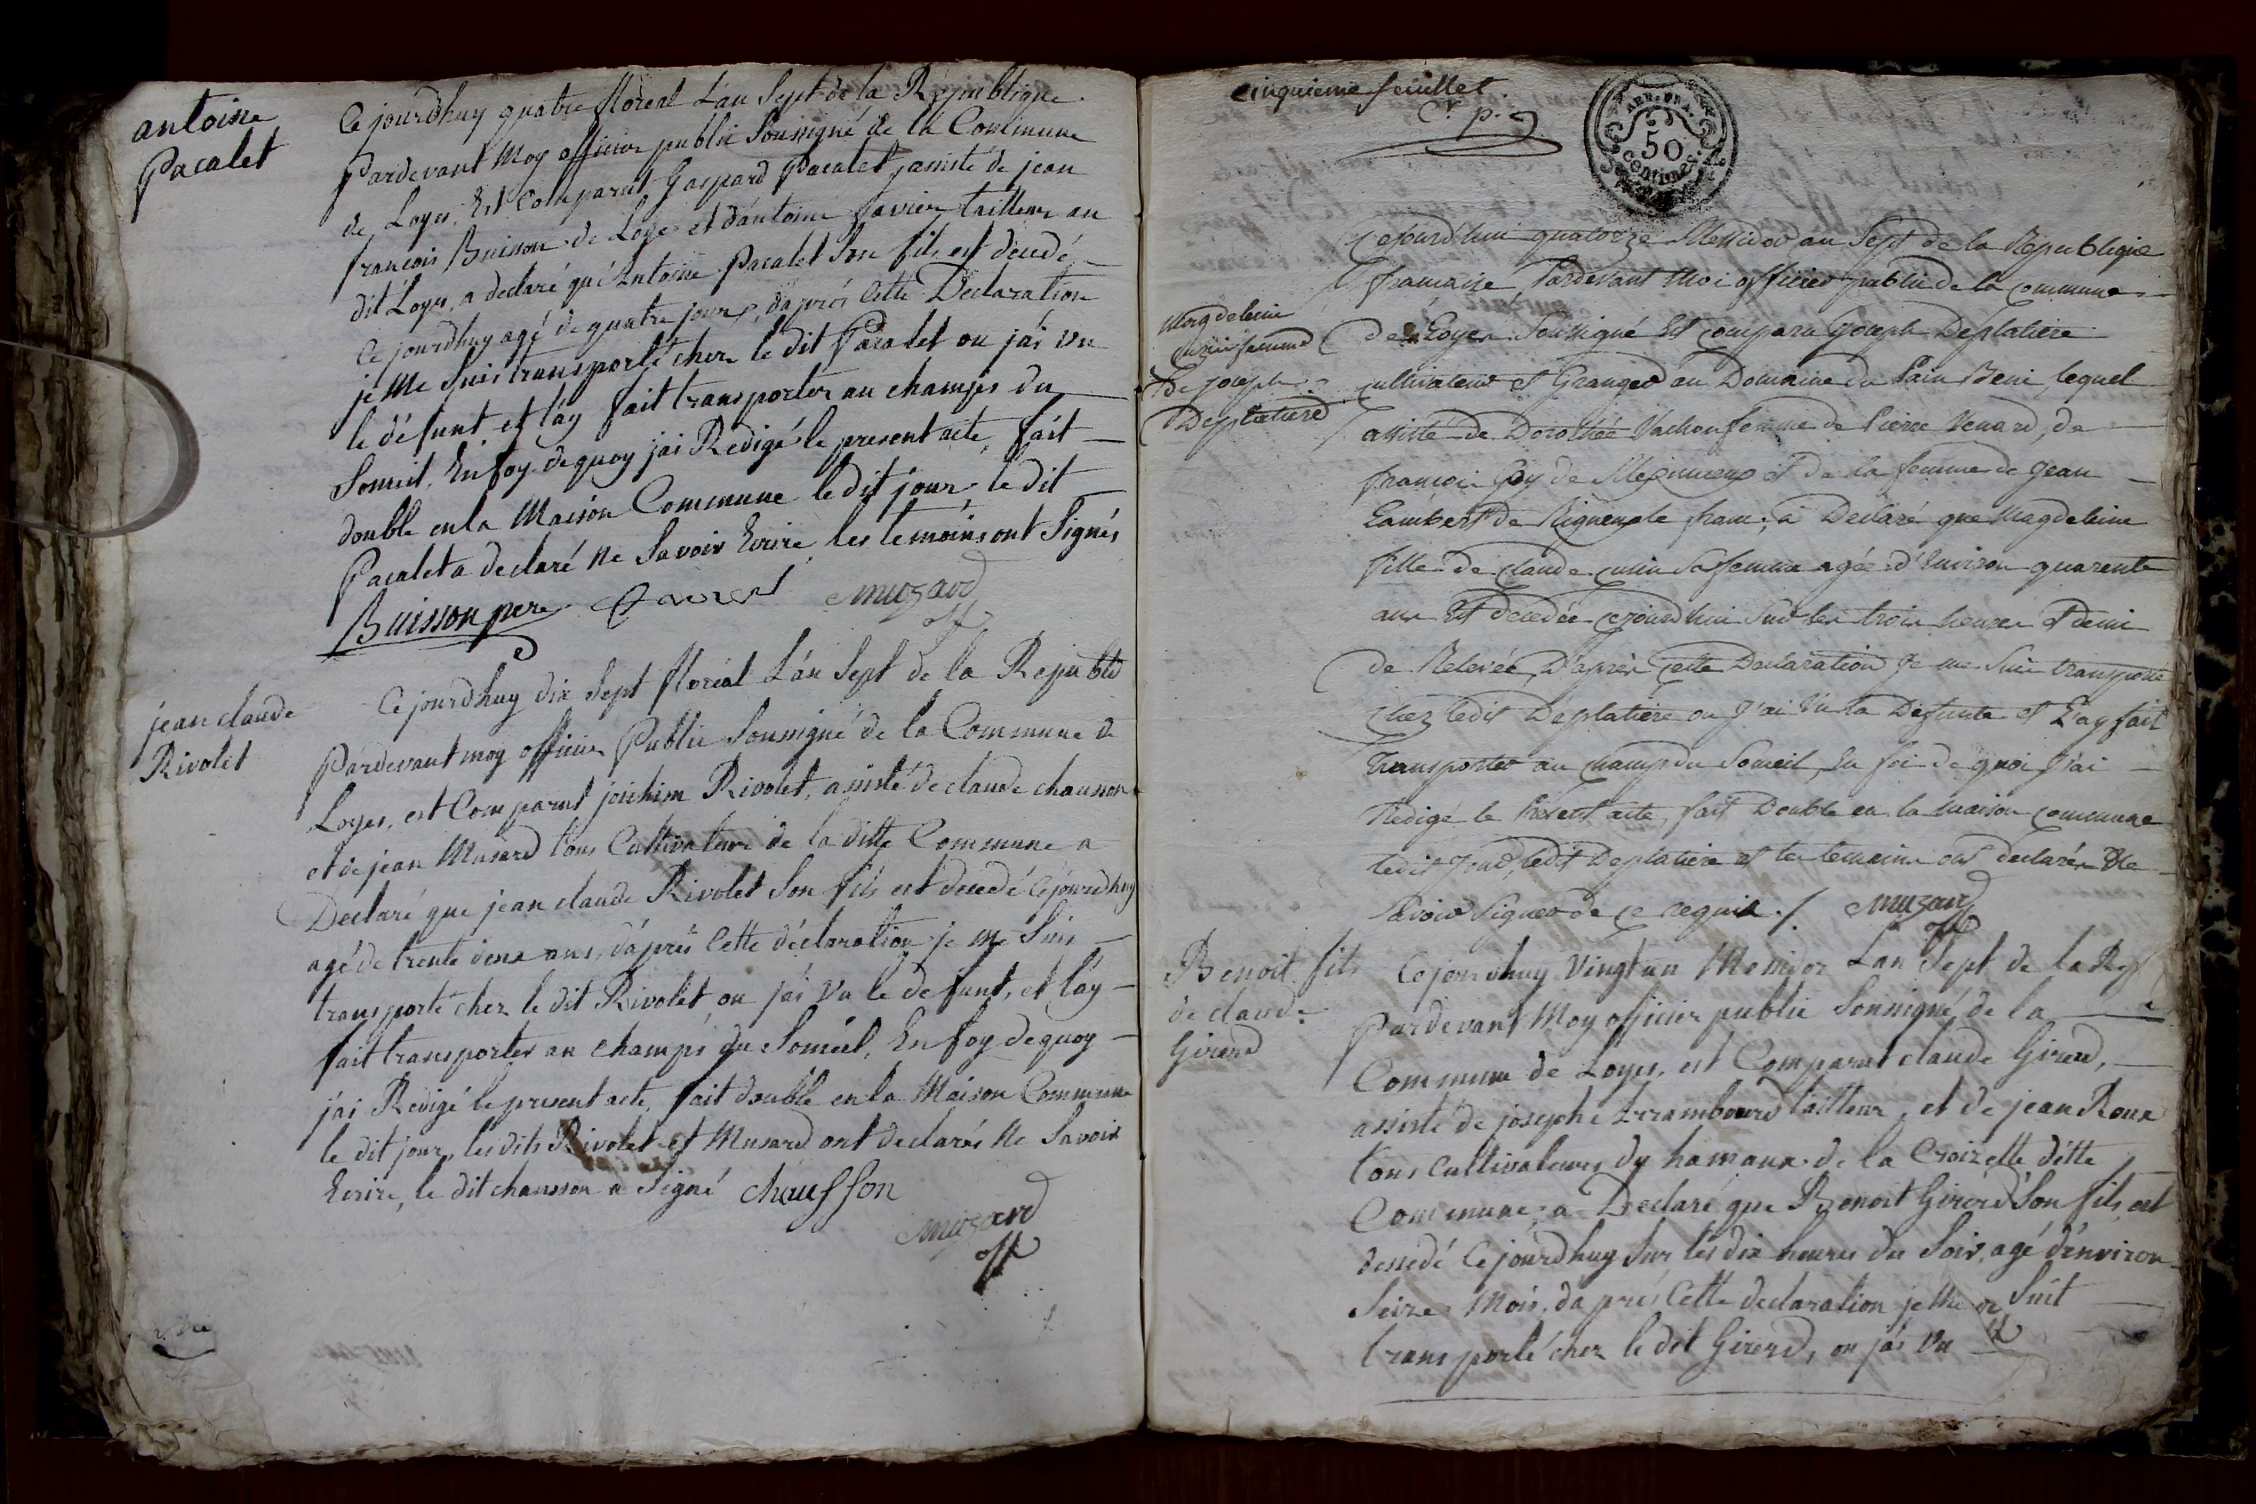 antoine
Pacalet
Cejourdhuy quatre floreal Lan Sept de la Republique
Pardevant Moy officier public Soussigné de la Commune
de Loyes, Est Comparut Gaspard Pacalet, assisté de jean
françois Buisson de Loyes et d'antoine favier tailleur au
dit Loyes, a declaré que Antoine Pacalet Son fils est decedé
Ce jourdhuy agé de quatre jours, dapres Cette Declaration
je Me Suis transporté chez le dit Pacalet ou jai vu
le défunt et l'ay fait transporter au champs du
Someil, En foy dequoy jai Redigé le present acte, fait
double en la Maison Commune le dit jour, le dit
Pacalet a declaré Ne Savoir Ecrire les temoins ont Signés
Buisson pere favier muzard
off
jean claude
Rivolet
Cejourdhuy dix Sept floreal Lan Sept de la Republi
Pardevant moy officier Public Soussigné de la Commune de
Loyes, est Comparut joachim Rivolet, assisté de claude chausson
et de jean Musard tous Cultivateurs de la ditte Commune a
Declaré que jean claude Rivolet Son fils est decedé Cejourdhuy
agé de trente deux ans, dapres Cette déclaration je me Suis
transporté chez le dit Rivolet, ou jai vu le defunt, et l'ay
fait transporter au champs du Someil, En foy dequoy
jai Redigé le present acte, fait double en la Maison Commune
le dit jour, les dits Rivolet et Musard ont declarés Ne Savoir
Ecrire, le dit chausson a Signé chausson
muzard
off
cinquieme feuillet.
C. p.
50
centimes
Magdeleine
cusin femme
de joseph
Deplatiere
Cejourd'hui quatorze Messidor an Sept de la Republique
francaise, Pardevant Moi officier public de la commune
de Loyes Soussigné Est comparu Joseph Déplatiere
cultivateur et Granger au Domaine du Pain Beni lequel
assisté de Dorothée Vachon femme de Pierre Venard, de
françois Goy de Meximieux et de la femme de Jean
Lambert de Rigneux le franc, a Declaré que Magdeleine
fille de claude cusin Sa femme agée d'Environ quarente
ans Est decedée cejourd'hui Sur les trois heures et demi
de Relevée, D'après cette Declaration Je me Suis transporté
chez ledit Deplatiere ou J'ai Vu la Defunte et L'ay fait
transporter au champ du Someil, En foi de quoi J'ai
Redigé le Present acte, fait Double en la maison commune
ledit Jour, ledit Deplatiere et les temoins ont declarés Ne
Savoir Signer de ce requis ./. muzard
off
Benoit fils
de claude
Girerd
Cejourdhuy Vingt un Messidor Lan Sept de la Rep
Pardevant Moy officier public Soussigné de la
Commune de Loyes, est Comparut claude Girerd,
assisté de josephe Errambourd tailleur, et de jean Roux
tous Cultivateurs du hamaux de la Croizette ditte
Commune, a Declaré que Benoit Girerd Son fils, est
dessedé Cejourdhuy Sur les dix heures du Soir, agé d'environ
Seize Mois, da pres Cette declaration je Me Suit
transporté chez le dit Girerd, ou jai vu